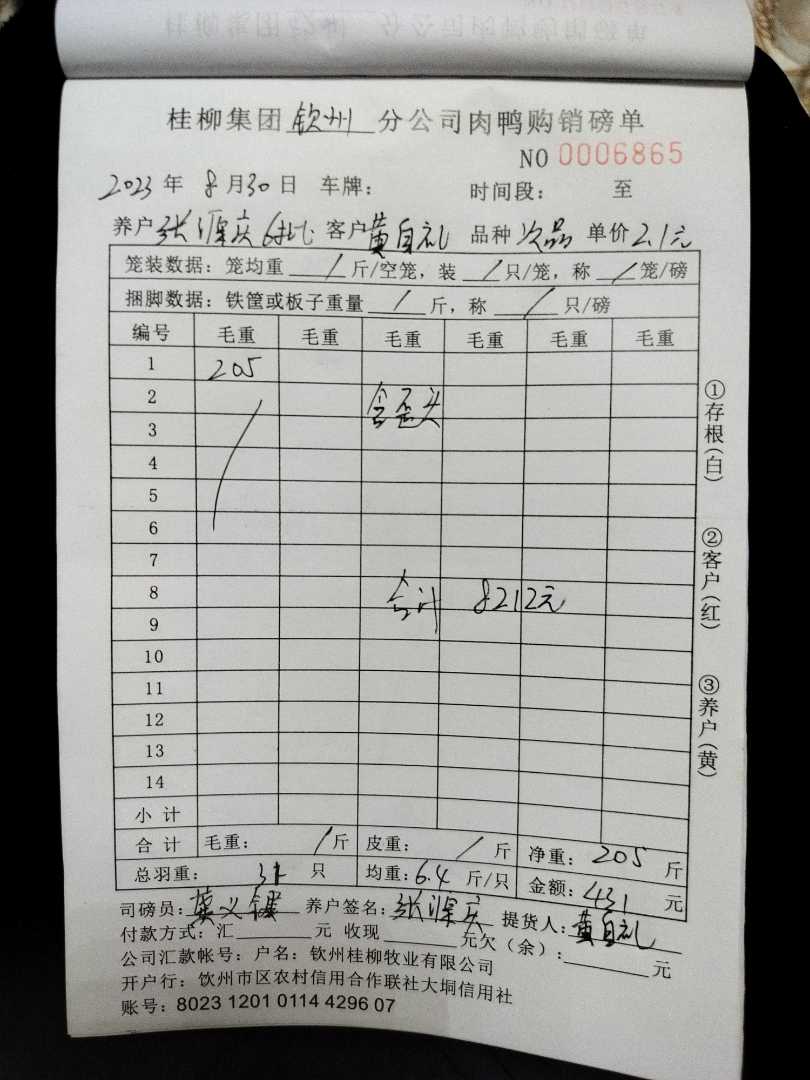 桂柳集团 钦州 分公司肉鸭购销磅单
NO 0006865
2023年 8月30日 车牌： 时间段： 至
养户 张 庆 6批 客户 黄自礼 品种 次品 单价 2.1元
笼装数据：笼均重 / 斤/空笼，装 / 只/笼，称 / 笼/磅
捆脚数据：铁筐或板子重量 / 斤，称 / 只/磅
编号 毛重 毛重 毛重 毛重 毛重 毛重
1 205
2 含歪头
3
4
5
6
7
8 合计 8212元
9
10
11
12
13
14
小计
合计 毛重： / 斤 皮重： / 斤 净重：205 斤
总羽重： 只 均重：6.4 斤/只 金额：431 元
司磅员： 养户签名：张 庆 提货人：黄自礼
付款方式：汇 元 收现 元欠（余）： 元
公司汇款帐号：户名：钦州桂柳牧业有限公司
开户行：钦州市区农村信用合作联社大垌信用社
账号：8023 1201 0114 4296 07
①存根（白）
②客户（红）
③养户（黄）